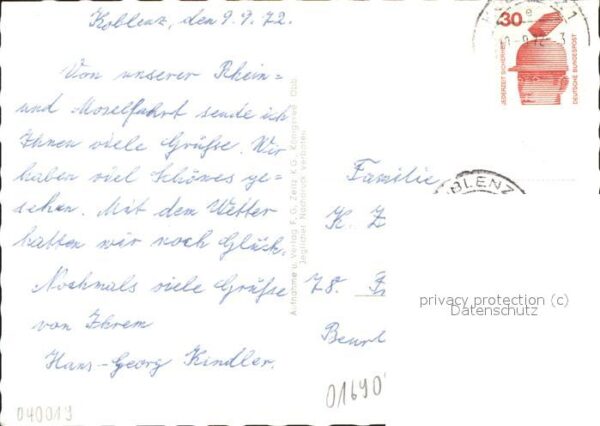 Koblenz, den 9.9.72.
Von unserer Rhein=
und Moselfahrt sende ich
Ihnen viele Grüße. Wir
haben viel Schönes ge-
sehen. Mit dem Wetter
hatten wir noch Glück.
Nochmals viele Grüße
von Ihrem
Hans-Georg Kindler.
Aufnahme u. Verlag F. G. Zenz K G., Königsee Obb.
Jeglicher Nachdruck verboten
30
JEDERZEIT SICHERHEIT
DEUTSCHE BUNDESPOST
OBLENZ
Familie
K. Z
78. Fr
Beurl
privacy protection (c)
Datenschutz
01690
040019